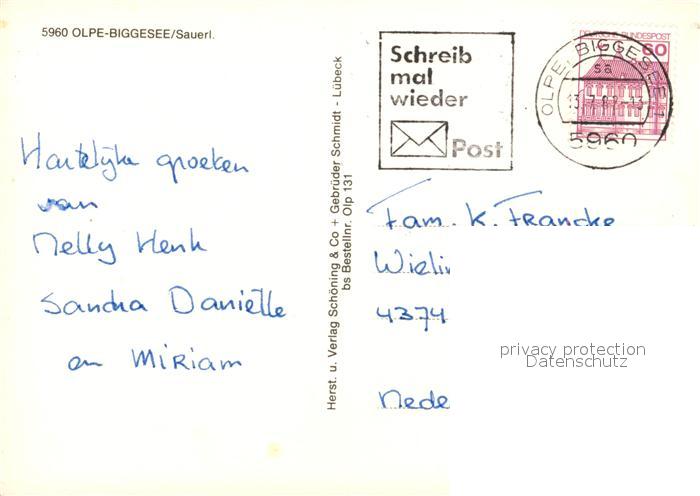 5960 OLPE-BIGGESEE/Sauerl.
Schreib
mal
wieder
Post
DEUTSCHE BUNDESPOST
60
OLPE, BIGGESEE
5960
Hartelijke groeten
van
Nelly Henk
Sandra Danielle
en Miriam
Herst. u. Verlag Schöning & Co + Gebrüder Schmidt - Lübeck
bs Bestellnr. Olp 131
Fam. K. Francke
4374
privacy protection
Datenschutz